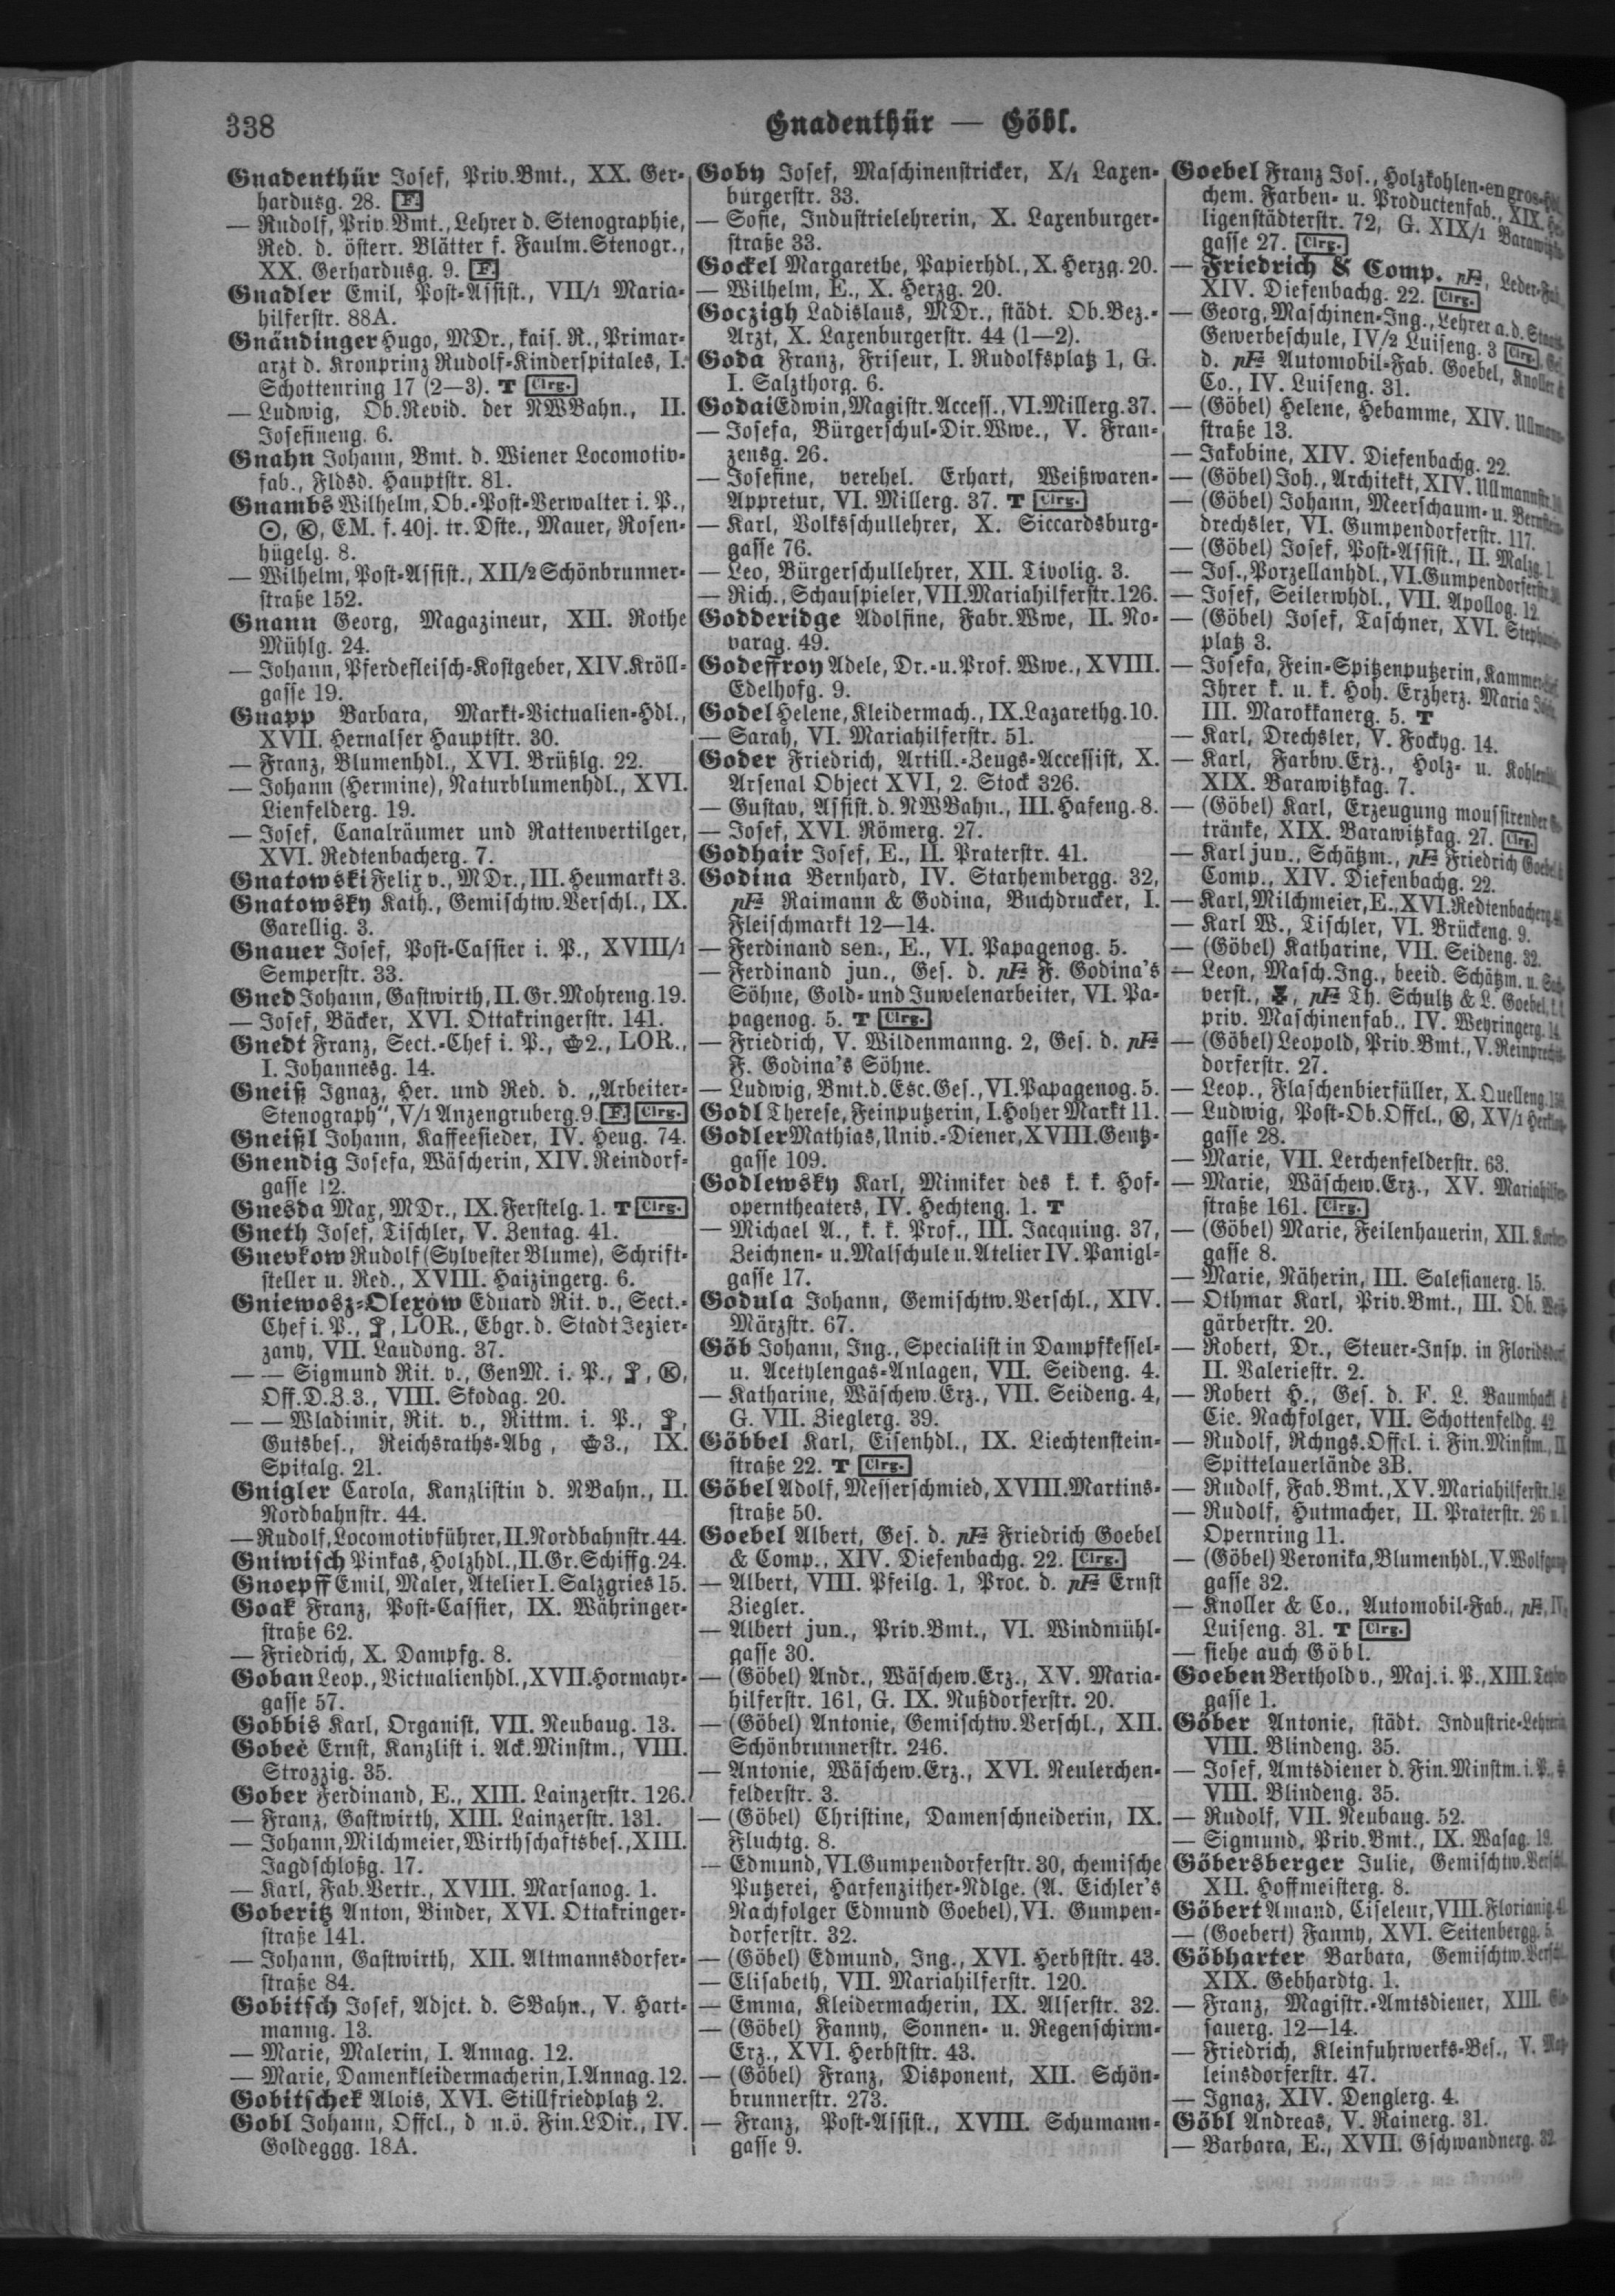 338
Gnadenthür — Göbl.
Gnadenthür Josef, Priv.Bmt., XX. Ger-
hardusg. 28. F.
— Rudolf, Priv.Bmt., Lehrer d. Stenographie,
Red. d. österr. Blätter f. Faulm.Stenogr.,
XX. Gerhardusg. 9. F.
Gnadler Emil, Post-Assist., VII/1 Maria-
hilferstr. 88A.
Gnändinger Hugo, MDr., kais. R., Primar-
arzt d. Kronprinz Rudolf-Kinderspitales, I.
Schottenring 17 (2—3). T Clrg.
— Ludwig, Ob.Revid. der NWBahn., II.
Josefineng. 6.
Gnahn Johann, Bmt. d. Wiener Locomotiv-
fab., Fldsd. Hauptstr. 81.
Gnambs Wilhelm, Ob.-Post-Verwalter i. P.,
☉, Ⓚ, EM. f. 40j. tr. Dste., Mauer, Rosen-
hügelg. 8.
— Wilhelm, Post-Assist., XII/2 Schönbrunner-
straße 152.
Gnann Georg, Magazineur, XII. Rothe
Mühlg. 24.
— Johann, Pferdefleisch-Kostgeber, XIV. Kröll-
gasse 19.
Gnapp Barbara, Markt-Victualien-Hdl.,
XVII. Hernalser Hauptstr. 30.
— Franz, Blumenhdl., XVI. Brüßlg. 22.
— Johann (Hermine), Naturblumenhdl., XVI.
Lienfelderg. 19.
— Josef, Canalräumer und Rattenvertilger,
XVI. Redtenbacherg. 7.
Gnatowski Felix v., MDr., III. Heumarkt 3.
Gnatowsky Kath., Gemischtw.Verschl., IX.
Garellig. 3.
Gnauer Josef, Post-Cassier i. P., XVIII/1
Semperstr. 33.
Gned Johann, Gastwirth, II. Gr. Mohreng. 19.
— Josef, Bäcker, XVI. Ottakringerstr. 141.
Gnedt Franz, Sect.-Chef i. P., 2., LOR.,
I. Johannesg. 14.
Gneiß Ignaz, Her. und Red. d. „Arbeiter-
Stenograph“, V/1 Anzengruberg. 9. F. Clrg.
Gneißl Johann, Kaffeesieder, IV. Heug. 74.
Gnendig Josefa, Wäscherin, XIV. Reindorf-
gasse 12.
Gnesda Max, MDr., IX. Ferstelg. 1. T Clrg.
Gneth Josef, Tischler, V. Zentag. 41.
Gnevkow Rudolf (Sylvester Blume), Schrift-
steller u. Red., XVIII. Haizingerg. 6.
Gniewosz-Olexów Eduard Rit. v., Sect.-
Chef i. P., LOR., Ebgr. d. Stadt Jezier-
zany, VII. Laudong. 37.
— — Sigmund Rit. v., GenM. i. P., Ⓚ,
Off.D.Z.3., VIII. Skodag. 20.
— — Wladimir, Rit. v., Rittm. i. P.,
Gutsbes., Reichsraths-Abg., 3., IX.
Spitalg. 21.
Gnigler Carola, Kanzlistin d. NBahn., II.
Nordbahnstr. 44.
— Rudolf, Locomotivführer, II. Nordbahnstr. 44.
Gniwisch Pinkas, Holzhdl., II. Gr. Schiffg. 24.
Gnoepff Emil, Maler, Atelier I. Salzgries 15.
Goak Franz, Post-Cassier, IX. Währinger-
straße 62.
— Friedrich, X. Dampfg. 8.
Goban Leop., Victualienhdl., XVII. Hormayr-
gasse 57.
Gobbis Karl, Organist, VII. Neubaug. 13.
Gobeč Ernst, Kanzlist i. Ack.Minstm., VIII.
Strozzig. 35.
Gober Ferdinand, E., XIII. Lainzerstr. 126.
— Franz, Gastwirth, XIII. Lainzerstr. 131.
— Johann, Milchmeier, Wirthschaftsbes., XIII.
Jagdschloßg. 17.
— Karl, Fab.Vertr., XVIII. Marsanog. 1.
Goberitz Anton, Binder, XVI. Ottakringer-
straße 141.
— Johann, Gastwirth, XII. Altmannsdorfer-
straße 84.
Gobitsch Josef, Adjct. d. SBahn., V. Hart-
manng. 13.
— Marie, Malerin, I. Annag. 12.
— Marie, Damenkleidermacherin, I. Annag. 12.
Gobitschek Alois, XVI. Stillfriedplatz 2.
Gobl Johann, Offcl., d n.ö. Fin.LDir., IV.
Goldeggg. 18A.
Goby Josef, Maschinenstricker, X/1 Laxen-
burgerstr. 33.
— Sofie, Industrielehrerin, X. Laxenburger-
straße 33.
Gockel Margarethe, Papierhdl., X. Herzg. 20.
— Wilhelm, E., X. Herzg. 20.
Goczigh Ladislaus, MDr., städt. Ob.Bez.-
Arzt, X. Laxenburgerstr. 44 (1—2).
Goda Franz, Friseur, I. Rudolfsplatz 1, G.
I. Salzthorg. 6.
Godai Edwin, Magistr.Access., VI. Millerg. 37.
— Josefa, Bürgerschul-Dir.Wwe., V. Fran-
zensg. 26.
— Josefine, verehel. Erhart, Weißwaren-
Appretur, VI. Millerg. 37. T Clrg.
— Karl, Volksschullehrer, X. Siccardsburg-
gasse 76.
— Leo, Bürgerschullehrer, XII. Tivolig. 3.
— Rich., Schauspieler, VII. Mariahilferstr. 126.
Godderidge Adolfine, Fabr.Wwe, II. No-
varag. 49.
Godeffroy Adele, Dr.- u. Prof. Wwe., XVIII.
Edelhofg. 9.
Godel Helene, Kleidermach., IX. Lazarethg. 10.
— Sarah, VI. Mariahilferstr. 51.
Goder Friedrich, Artill.-Zeugs-Accessist, X.
Arsenal Object XVI, 2. Stock 326.
— Gustav, Assist. d. NWBahn., III. Hafeng. 8.
— Josef, XVI. Römerg. 27.
Godhair Josef, E., II. Praterstr. 41.
Godina Bernhard, IV. Starhembergg. 32,
pFa Raimann & Godina, Buchdrucker, I.
Fleischmarkt 12—14.
— Ferdinand sen., E., VI. Papagenog. 5.
— Ferdinand jun., Ges. d. pFa F. Godina's
Söhne, Gold- und Juwelenarbeiter, VI. Pa-
pagenog. 5. T Clrg.
— Friedrich, V. Wildenmanng. 2, Ges. d. pFa
F. Godina's Söhne.
— Ludwig, Bmt. d. Esc.Ges., VI. Papagenog. 5.
Godl Therese, Feinputzerin, I. Hoher Markt 11.
Godler Mathias, Univ.-Diener, XVIII. Gentz-
gasse 109.
Godlewsky Karl, Mimiker des k. k. Hof-
operntheaters, IV. Hechteng. 1. T
— Michael A., k. k. Prof., III. Jacquing. 37,
Zeichnen- u. Malschule u. Atelier IV. Panigl-
gasse 17.
Godula Johann, Gemischtw.Verschl., XIV.
Märzstr. 67.
Göb Johann, Ing., Specialist in Dampfkessel-
u. Acetylengas-Anlagen, VII. Seideng. 4.
— Katharine, Wäschew.Erz., VII. Seideng. 4,
G. VII. Zieglerg. 39.
Göbbel Karl, Eisenhdl., IX. Liechtenstein-
straße 22. T Clrg.
Göbel Adolf, Messerschmied, XVIII. Martins-
straße 50.
Goebel Albert, Ges. d. pFa Friedrich Goebel
& Comp., XIV. Diefenbachg. 22. Clrg.
— Albert, VIII. Pfeilg. 1, Proc. d. pFa Ernst
Ziegler.
— Albert jun., Priv.Bmt., VI. Windmühl-
gasse 30.
— (Göbel) Andr., Wäschew.Erz., XV. Maria-
hilferstr. 161, G. IX. Nußdorferstr. 20.
— (Göbel) Antonie, Gemischtw.Verschl., XII.
Schönbrunnerstr. 246.
— Antonie, Wäschew.Erz., XVI. Neulerchen-
felderstr. 3.
— (Göbel) Christine, Damenschneiderin, IX.
Fluchtg. 8.
— Edmund, VI. Gumpendorferstr. 30, chemische
Putzerei, Harfenzither-Ndlge. (A. Eichler's
Nachfolger Edmund Goebel), VI. Gumpen-
dorferstr. 32.
— (Göbel) Edmund, Ing., XVI. Herbststr. 43.
— Elisabeth, VII. Mariahilferstr. 120.
— Emma, Kleidermacherin, IX. Alserstr. 32.
— (Göbel) Fanny, Sonnen- u. Regenschirm-
Erz., XVI. Herbststr. 43.
— (Göbel) Franz, Disponent, XII. Schön-
brunnerstr. 273.
— Franz, Post-Assist., XVIII. Schumann-
gasse 9.
Goebel Franz Jos., Holzkohlen-en gros-
chem. Farben- u. Productenfab., XIX.
ligenstädterstr. 72, G. XIX/1
gasse 27. Clrg.
— Friedrich & Comp. pFa, Leder-
XIV. Diefenbachg. 22. Clrg.
— Georg, Maschinen-Ing., Lehrer a. d.
Gewerbeschule, IV/2 Luiseng. 3 Clrg.
d. pFa Automobil-Fab. Goebel, Knoller &
Co., IV. Luiseng. 31.
— (Göbel) Helene, Hebamme, XIV. Ullmann-
straße 13.
— Jakobine, XIV. Diefenbachg. 22.
— (Göbel) Joh., Architekt, XIV. Ullmannstr.
— (Göbel) Johann, Meerschaum- u. Bernstein-
drechsler, VI. Gumpendorferstr. 117.
— (Göbel) Josef, Post-Assist., II. Malzg. 1.
— Jos., Porzellanhdl., VI. Gumpendorferstr.
— Josef, Seilerwhdl., VII. Apollog. 12.
— (Göbel) Josef, Taschner, XVI. Stephanie-
platz 3.
— Josefa, Fein-Spitzenputzerin,
Ihrer k. u. k. Hoh. Erzherz. Maria
III. Marokkanerg. 5. T
— Karl, Drechsler, V. Fockyg. 14.
— Karl, Farbw.Erz., Holz- u.
XIX. Barawitzkag. 7.
— (Göbel) Karl, Erzeugung moussirender
tränke, XIX. Barawitzkag. 27. Clrg.
— Karl jun., Schätzm., pFa Friedrich Goebel &
Comp., XIV. Diefenbachg. 22.
— Karl, Milchmeier, E., XVI. Redtenbacherg.
— Karl W., Tischler, VI. Brückeng. 9.
— (Göbel) Katharine, VII. Seideng. 32.
— Leon, Masch.Ing., beeid. Schätzm. u. Sach-
verst., pFa Th. Schultz & L. Goebel, k. k.
priv. Maschinenfab., IV. Weyringerg. 14.
— (Göbel) Leopold, Priv.Bmt., V. Reinprechts-
dorferstr. 27.
— Leop., Flaschenbierfüller, X. Quelleng.
— Ludwig, Post-Ob.Offcl., Ⓚ, XV/1 Herklotz-
gasse 28.
— Marie, VII. Lerchenfelderstr. 63.
— Marie, Wäschew.Erz., XV. Mariahilfer-
straße 161. Clrg.
— (Göbel) Marie, Feilenhauerin, XII.
gasse 8.
— Marie, Näherin, III. Salesianerg. 15.
— Othmar Karl, Priv.Bmt., III. Ob. Weiß-
gärberstr. 20.
— Robert, Dr., Steuer-Insp. in Floridsdorf,
II. Valeriestr. 2.
— Robert H., Ges. d. F. L. Baumhackl &
Cie. Nachfolger, VII. Schottenfeldg. 42.
— Rudolf, Rchngs.Offcl. i. Fin.Minstm.,
Spittelauerlände 3B.
— Rudolf, Fab.Bmt., XV. Mariahilferstr.
— Rudolf, Hutmacher, II. Praterstr. 26 u. I.
Opernring 11.
— (Göbel) Veronika, Blumenhdl., V. Wolfgang-
gasse 32.
— Knoller & Co., Automobil-Fab., pFa, IV.
Luiseng. 31. T Clrg.
— siehe auch Göbl.
Goeben Berthold v., Maj. i. P., XIII.
gasse 1.
Göber Antonie, städt. Industrie-Lehrerin,
VIII. Blindeng. 35.
— Josef, Amtsdiener d. Fin.Minstm. i. P.,
VIII. Blindeng. 35.
— Rudolf, VII. Neubaug. 52.
— Sigmund, Priv.Bmt., IX. Wasag. 19.
Göbersberger Julie, Gemischtw.Verschl.
XII. Hoffmeisterg. 8.
Göbert Amand, Ciseleur, VIII. Florianig.
— (Goebert) Fanny, XVI. Seitenbergg. 5.
Göbharter Barbara, Gemischtw.Verschl.
XIX. Gebhardtg. 1.
— Franz, Magistr.-Amtsdiener, XIII.
sauerg. 12—14.
— Friedrich, Kleinfuhrwerks-Bes., V. Matz-
leinsdorferstr. 47.
— Ignaz, XIV. Denglerg. 4.
Göbl Andreas, V. Rainerg. 31.
— Barbara, E., XVII. Gschwandnerg. 32.